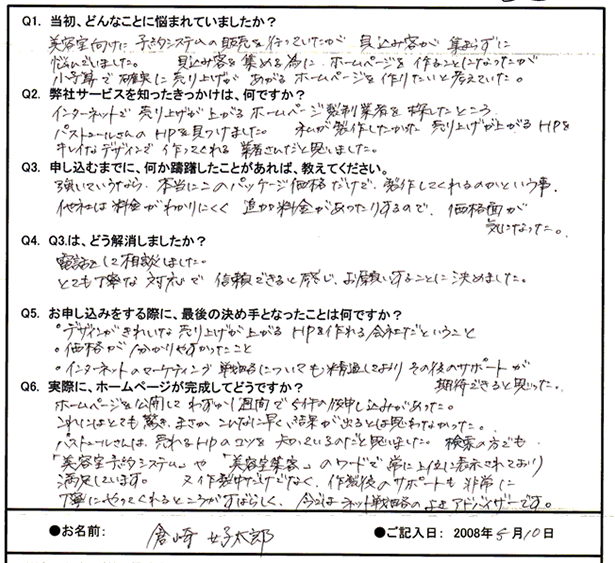 Q1. 当初、どんなことに悩まれていましたか?
美容室向けに予約システムの販売を行っていたが 見込み客が集まらずに
悩んでいました。 見込み客を集める為に ホームページを作ることになったが
小予算で確実に売り上げが あがるホームページを作りたいと考えていた。
Q2. 弊社サービスを知ったきっかけは、何ですか?
インターネットで 売り上げが上がるホームページ製制業者を探したところ
パストュールさんのHPを見つけました。 私が製作したかった 売り上げが上がるHPを
キレイなデザインで 作ってくれる 業者さんだと思いました。
Q3. 申し込むまでに、何か躊躇したことがあれば、教えてください。
強いていうなら、本当にこのパッケージ価格だけで、製作してくれるのかという事。
他社は料金がわかりにくく 追加料金があったりするので、価格面が
気になった。
Q4. Q3.は、どう解消しましたか?
電話をして相談しました。
とても丁寧な 対応で 信頼できると感じ、お願いすることに決めました。
Q5. お申し込みをする際に、最後の決め手となったことは何ですか?
・デザインがきれいな売り上げが上がる HPを作れる会社だということ
・価格が 分かりやすかったこと
・インターネットのマーケティング 戦略についても精通しており その後のサポートが
期待できると思った。
Q6. 実際に、ホームページが完成してどうですか?
ホームページを公開して わずか1週間で5件の仮申し込みがあった。
これにはとても驚き、まさか こんなに早く結果が出るとは思わなかった。
パストュールさんは、売れるHPのコツを 知っているのだと思いました。 検索の方でも
「美容室予約システム」や「美容室集客」のワードで 常に上位に表示されており
満足しています。 又作製中だけでなく、作製後のサポートも非常に
丁寧にやってくれるところがすばらしく、今ではネット戦略のよきアドバイザーです。
●お名前: 倉崎 好太郎 ●ご記入日: 2008年5月10日